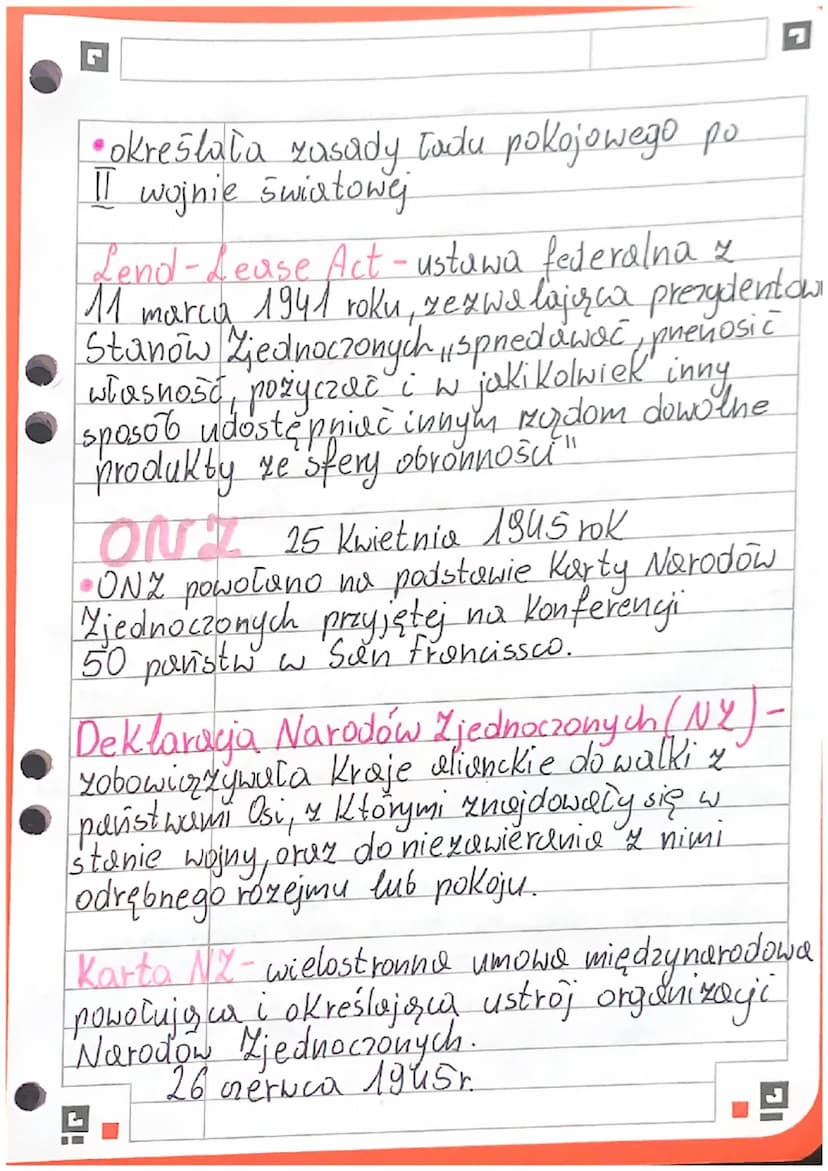 •określała zasady ładu pokojowego po
II wojnie światowej
Lend-Lease Act - ustawa federalna z
11 marca 1941 roku, zezwalająca prezydentow
Stanów Zjednoczonych „sprzedawać, przenosić
własność, pożyczać i w jakikolwiek inny
sposób udostępniać innym rządom dowolne
produkty ze sfery obronności"
ONZ 25 kwietnia 1945 rok
•ONZ powołano na podstawie Karty Narodów
Zjednoczonych przyjętej na konferencji
50 państw w San Francissco.
Deklaracja Narodów Zjednoczonych (NZ) -
zobowiązywała kraje alianckie do walki z
państwami Osi, z którymi znajdowały się w
stanie wojny, oraz do niezawierania z nimi
odrębnego rozejmu lub pokoju.
Karta NZ - wielostronna umowa międzynarodowa
powołująca i określająca ustrój organizacji
Narodów Zjednoczonych.
26 czerwca 1945r.